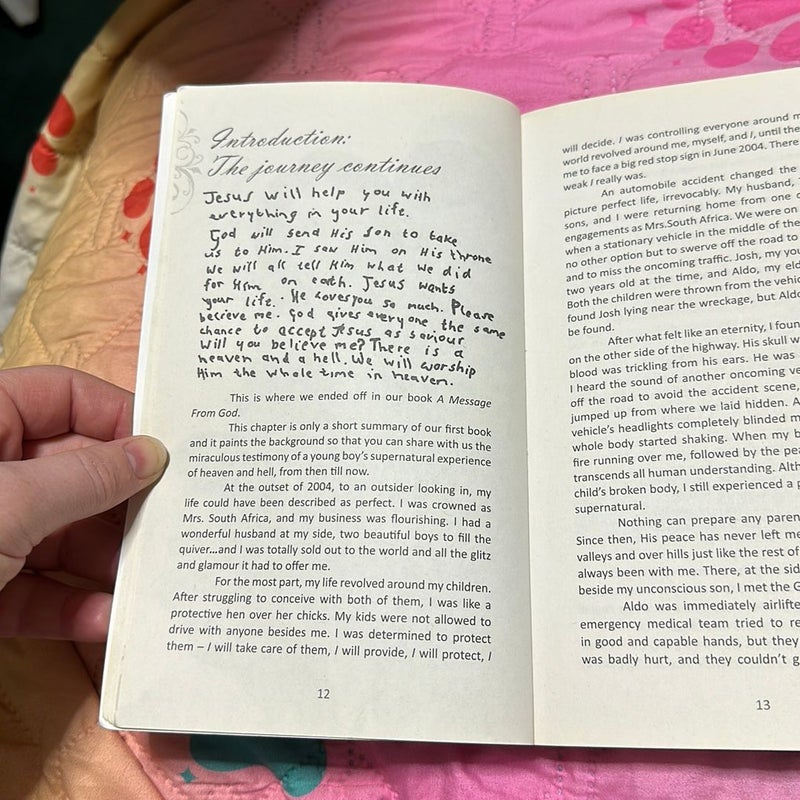 Introduction:
The journey continues
Jesus will help you with
everything in your life.
God will send His Son to take
us to Him. I saw Him on His throne
We will all tell Him what we did
for Him on eath. Jesus wants
your life. He loves you so much. Please
believe me. God gives everyone the same
chance to accept Jesus as saviour
Will you believe me? There is a
heaven and a hell. We will worship
Him the whole time in heaven.
This is where we ended off in our book A Message
From God.
This chapter is only a short summary of our first book
and it paints the background so that you can share with us the
miraculous testimony of a young boy's supernatural experience
of heaven and hell, from then till now.
At the outset of 2004, to an outsider looking in, my
life could have been described as perfect. I was crowned as
Mrs. South Africa, and my business was flourishing. I had a
wonderful husband at my side, two beautiful boys to fill the
quiver...and I was totally sold out to the world and all the glitz
and glamour it had to offer me.
For the most part, my life revolved around my children.
After struggling to conceive with both of them, I was like a
protective hen over her chicks. My kids were not allowed to
drive with anyone besides me. I was determined to protect
them – I will take care of them, I will provide, I will protect, I
12
will decide. I was controlling everyone around
world revolved around me, myself, and I, until the
me to face a big red stop sign in June 2004. There
weak I really was.
An automobile accident changed the
picture perfect life, irrevocably. My husband,
sons, and I were returning home from one
engagements as Mrs.South Africa. We were on
when a stationary vehicle in the middle of the
no other option but to swerve off the road to
and to miss the oncoming traffic. Josh, my
two years old at the time, and Aldo, my
Both the children were thrown from the
found Josh lying near the wreckage, but Aldo
be found.
After what felt like an eternity, I
on the other side of the highway. His skull
blood was trickling from his ears. He was
I heard the sound of another oncoming
off the road to avoid the accident scene,
jumped up from where we laid hidden.
vehicle's headlights completely blinded
whole body started shaking. When my
fire running over me, followed by the
transcends all human understanding.
child's broken body, I still experienced a
supernatural.
Nothing can prepare any
Since then, His peace has never left me
valleys and over hills just like the rest of
always been with me. There, at the
beside my unconscious son, I met the
Aldo was immediately
emergency medical team tried to
in good and capable hands, but they
was badly hurt, and they couldn't
13